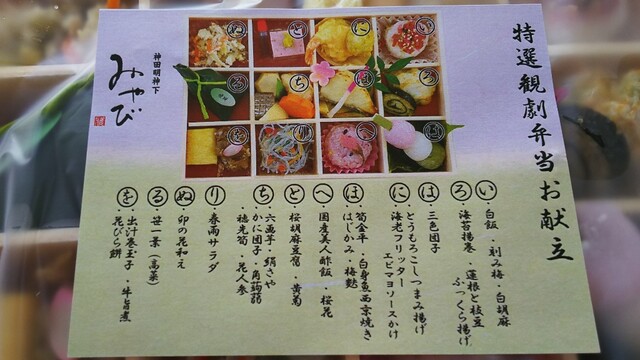 特選観劇弁当お献立
い ・白飯 ・刻み梅・白胡麻
ろ ・海苔揚巻 ・蓮根と枝豆
ふっくら揚げ
は ・三色団子
・とうもろこしつまみ揚げ
に ・海老フリッター
エビマヨソースかけ
ほ ・筍金平 ・白身魚西京焼き
・はじかみ ・梅麩
へ ・国産美人酢飯 ・桜花
と ・桜胡麻豆腐 ・黄菊
ち ・六画芋・絹さや
・かに団子・角蒟蒻
・穂先筍・花人参
り ・春雨サラダ
ぬ ・卯の花和え
る ・笹一葉(高菜)
を ・出汁巻玉子 ・牛旨煮
・花びら餅
ぬ と に い
る ち ほ ろ
を り へ は
神田明神下
みやび